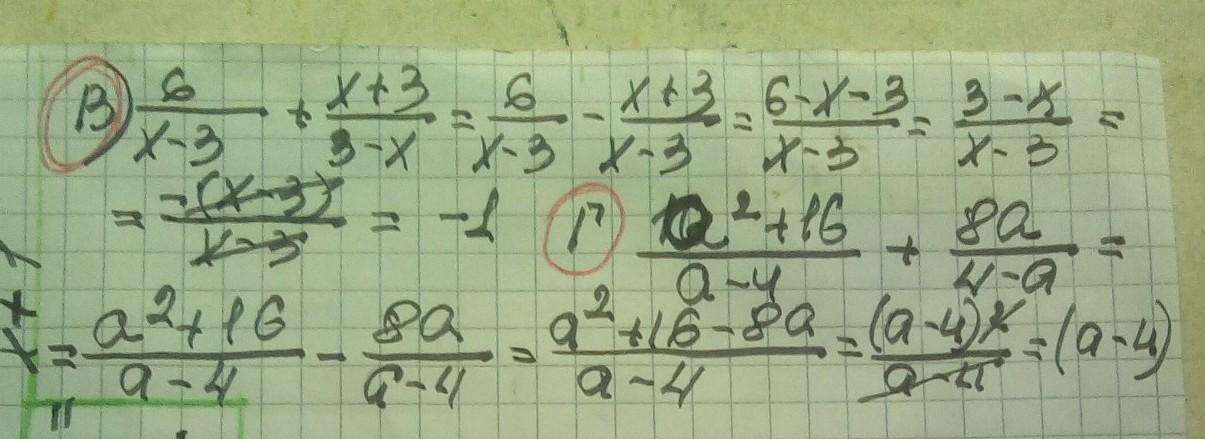 В) 6/(x-3) + (x+3)/(3-x) = 6/(x-3) - (x+3)/(x-3) = (6-x-3)/(x-3) = (3-x)/(x-3) =
= -(x-3)/(x-3) = -1 Г (a²+16)/(a-4) + 8a/(4-a) =
= (a²+16)/(a-4) - 8a/(a-4) = (a²+16-8a)/(a-4) = (a-4)²/(a-4) = (a-4)